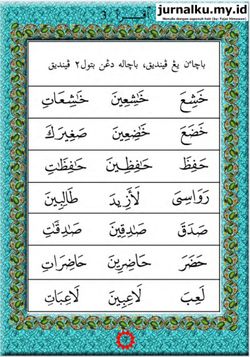 jurnalku.my.id
Menulis dengan sepenuh hati (by: Fajar Himawan)
باچاءن يڠ ڤينديق، باچاله دڠن بتول٢ ڤينديق
خَشِعَ خَٰشِعِينَ خَٰشِعَاتِ
خَضَعَ خَٰضِعِينَ صَغِيرَكَ
حَفِظَ حَٰفِظِينَ حَٰفِظَاتِ
رَوَاسِىَ لَأَزِيدَ طَالِبِينَ
صَدَقَ صَٰدِقِينَ صَٰدِقَٰتِ
حَضَرَ حَاضِرِينَ حَاضِرَاتِ
لَعِبَ لَاعِبِينَ لَاعِبَاتِ